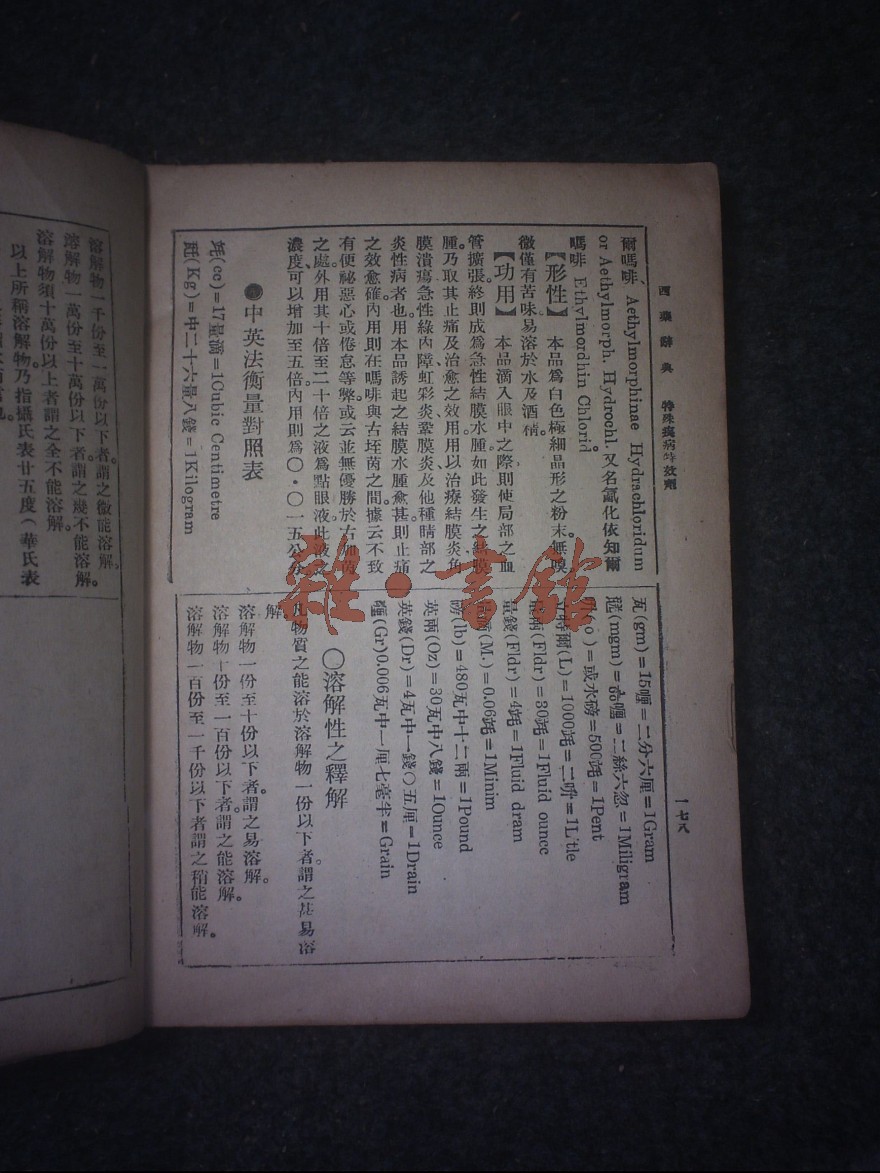 西藥辭典　特殊疾病特效劑
一七八
爾嗎啡、Aethylmorphinae Hydrachloridum
or Aethylmorph. Hydrochl. 又名氯化依知爾
嗎啡 Ethylmordhin Chlorid
【形性】　本品爲白色極細晶形之粉末無嗅
微僅有苦味易溶於水及酒精。
【功用】　本品滴入眼中之際則使局部之血
管擴張。終則成爲急性結膜水腫如此發生之結膜
腫乃取其止痛及治愈之效用。用以治療結膜炎角
膜潰瘍急性綠內障虹彩炎鞏膜炎及他種睛部之
炎性病者也。用本品誘起之結膜水腫愈甚。則止痛
之效愈確。內用則在嗎啡與古垤茵之間。據云不致
有便祕惡心或倦怠等弊。或云並無優勝於古
之處外用其十倍至二十倍之液爲點眼液。此液之
濃度、可以增加至五倍內用則爲〇・〇一五公分
●中英法衡量對照表
竓(cc)＝17量滴＝1Cubic Centimetre
瓩(Kg)＝中二十六量八錢＝1Kilogram
瓦(gm)＝15喱＝二分六厘＝1Gram
瓱(mgm)＝喱＝二絲六忽＝1Miligram
(o)＝或水磅＝500竓＝1Pent
立特爾(L)＝1000竓＝二＝1L'tle
量兩(Fldr)＝30竓＝1Fluid ounce
量錢(Fldr)＝4竓＝1Fluid dram
量滴(M.)＝0.06竓＝1Minim
磅(lb)＝480瓦中十二兩＝1Pound
英兩(Oz)＝30瓦中八錢＝1Ounce
英錢(Dr)＝4瓦中一錢〇五厘＝1Drain
喱(Gr)0.006瓦中一厘七毫半＝Grain
〇溶解性之釋解
凡物質之能溶於溶解物一份以下者。謂之甚易溶
解。
溶解物一份至十份以下者。謂之易溶解。
溶解物十份至一百份以下者。謂之能溶解。
溶解物一百份至一千份以下者謂之稍能溶解。
溶解物一千份至一萬份以下者。謂之微能溶解。
溶解物一萬份至十萬份以下者。謂之幾不能溶解。
溶解物須十萬份以上者謂之全不能溶解。
以上所稱溶解物。乃指攝氏表廿五度(華氏表
雜・書館